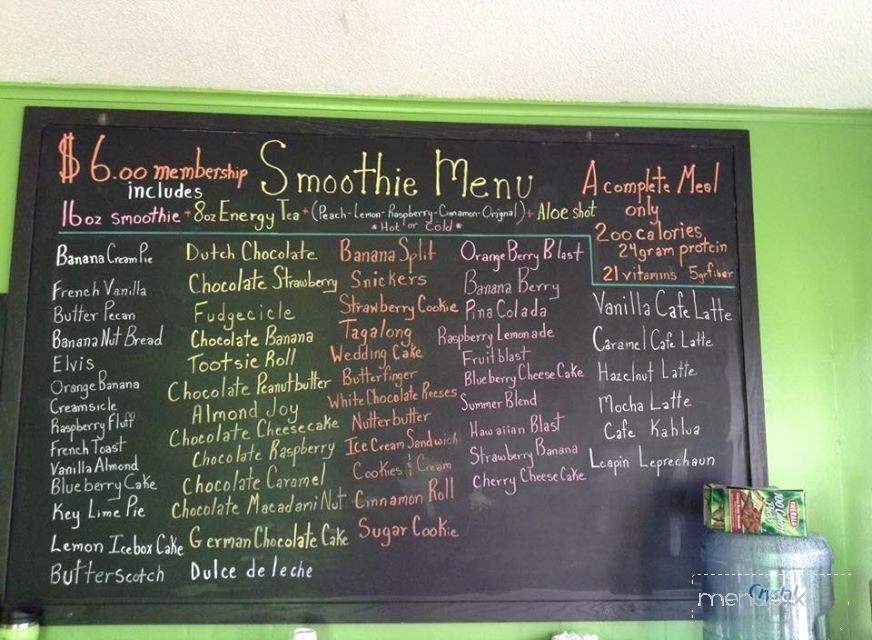 $6.00 membership
includes
Smoothie Menu
16oz smoothie + 8oz Energy Tea + (Peach-Lemon-Raspberry-Cinnamon-Orignal) + Aloe shot
*Hot or Cold*
A complete Meal
only
200 calories,
24gram protein
21 vitamins 5gr fiber
Banana Cream Pie
French Vanilla
Butter Pecan
Banana Nut Bread
Elvis
Orange Banana
Creamsicle
Raspberry Fluff
French Toast
Vanilla Almond
Blueberry Cake
Key Lime Pie
Lemon Icebox Cake
Butterscotch
Dutch Chocolate
Chocolate Strawberry
Fudgecicle
Chocolate Banana
Tootsie Roll
Chocolate Peanutbutter
Almond Joy
Chocolate Cheesecake
Chocolate Raspberry
Chocolate Caramel
Chocolate Macadami Nut
German Chocolate Cake
Dulce de leche
Banana Split
Snickers
Strawberry Cookie
Tagalong
Wedding Cake
Butterfinger
White Chocolate Reeses
Nutterbutter
Ice Cream Sandwich
Cookies & Cream
Cinnamon Roll
Sugar Cookie
Orange Berry Blast
Banana Berry
Pina Colada
Raspberry Lemonade
Fruit blast
Blueberry Cheese Cake
Summer Blend
Hawaiian Blast
Strawberry Banana
Cherry Cheese Cake
Vanilla Cafe Latte
Caramel Cafe Latte
Hazelnut Latte
Mocha Latte
Cafe Kahlua
Leapin Leprechaun